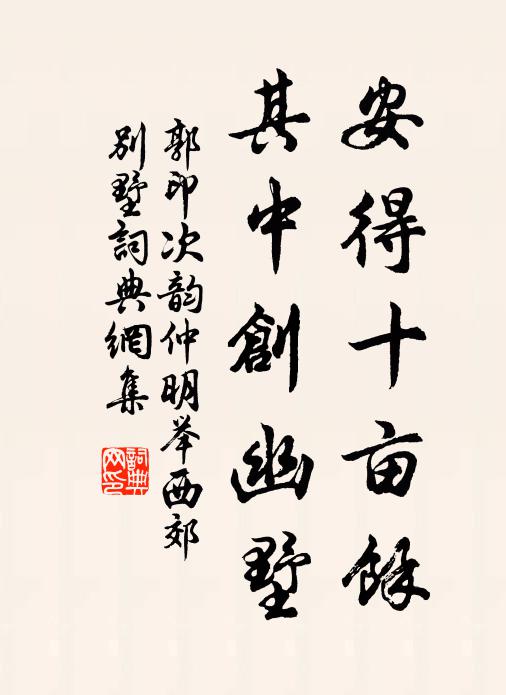 安得十亩餘
其中創幽墅
郭印次韵仲明举西郊
别墅詞典網集
詞典
网印